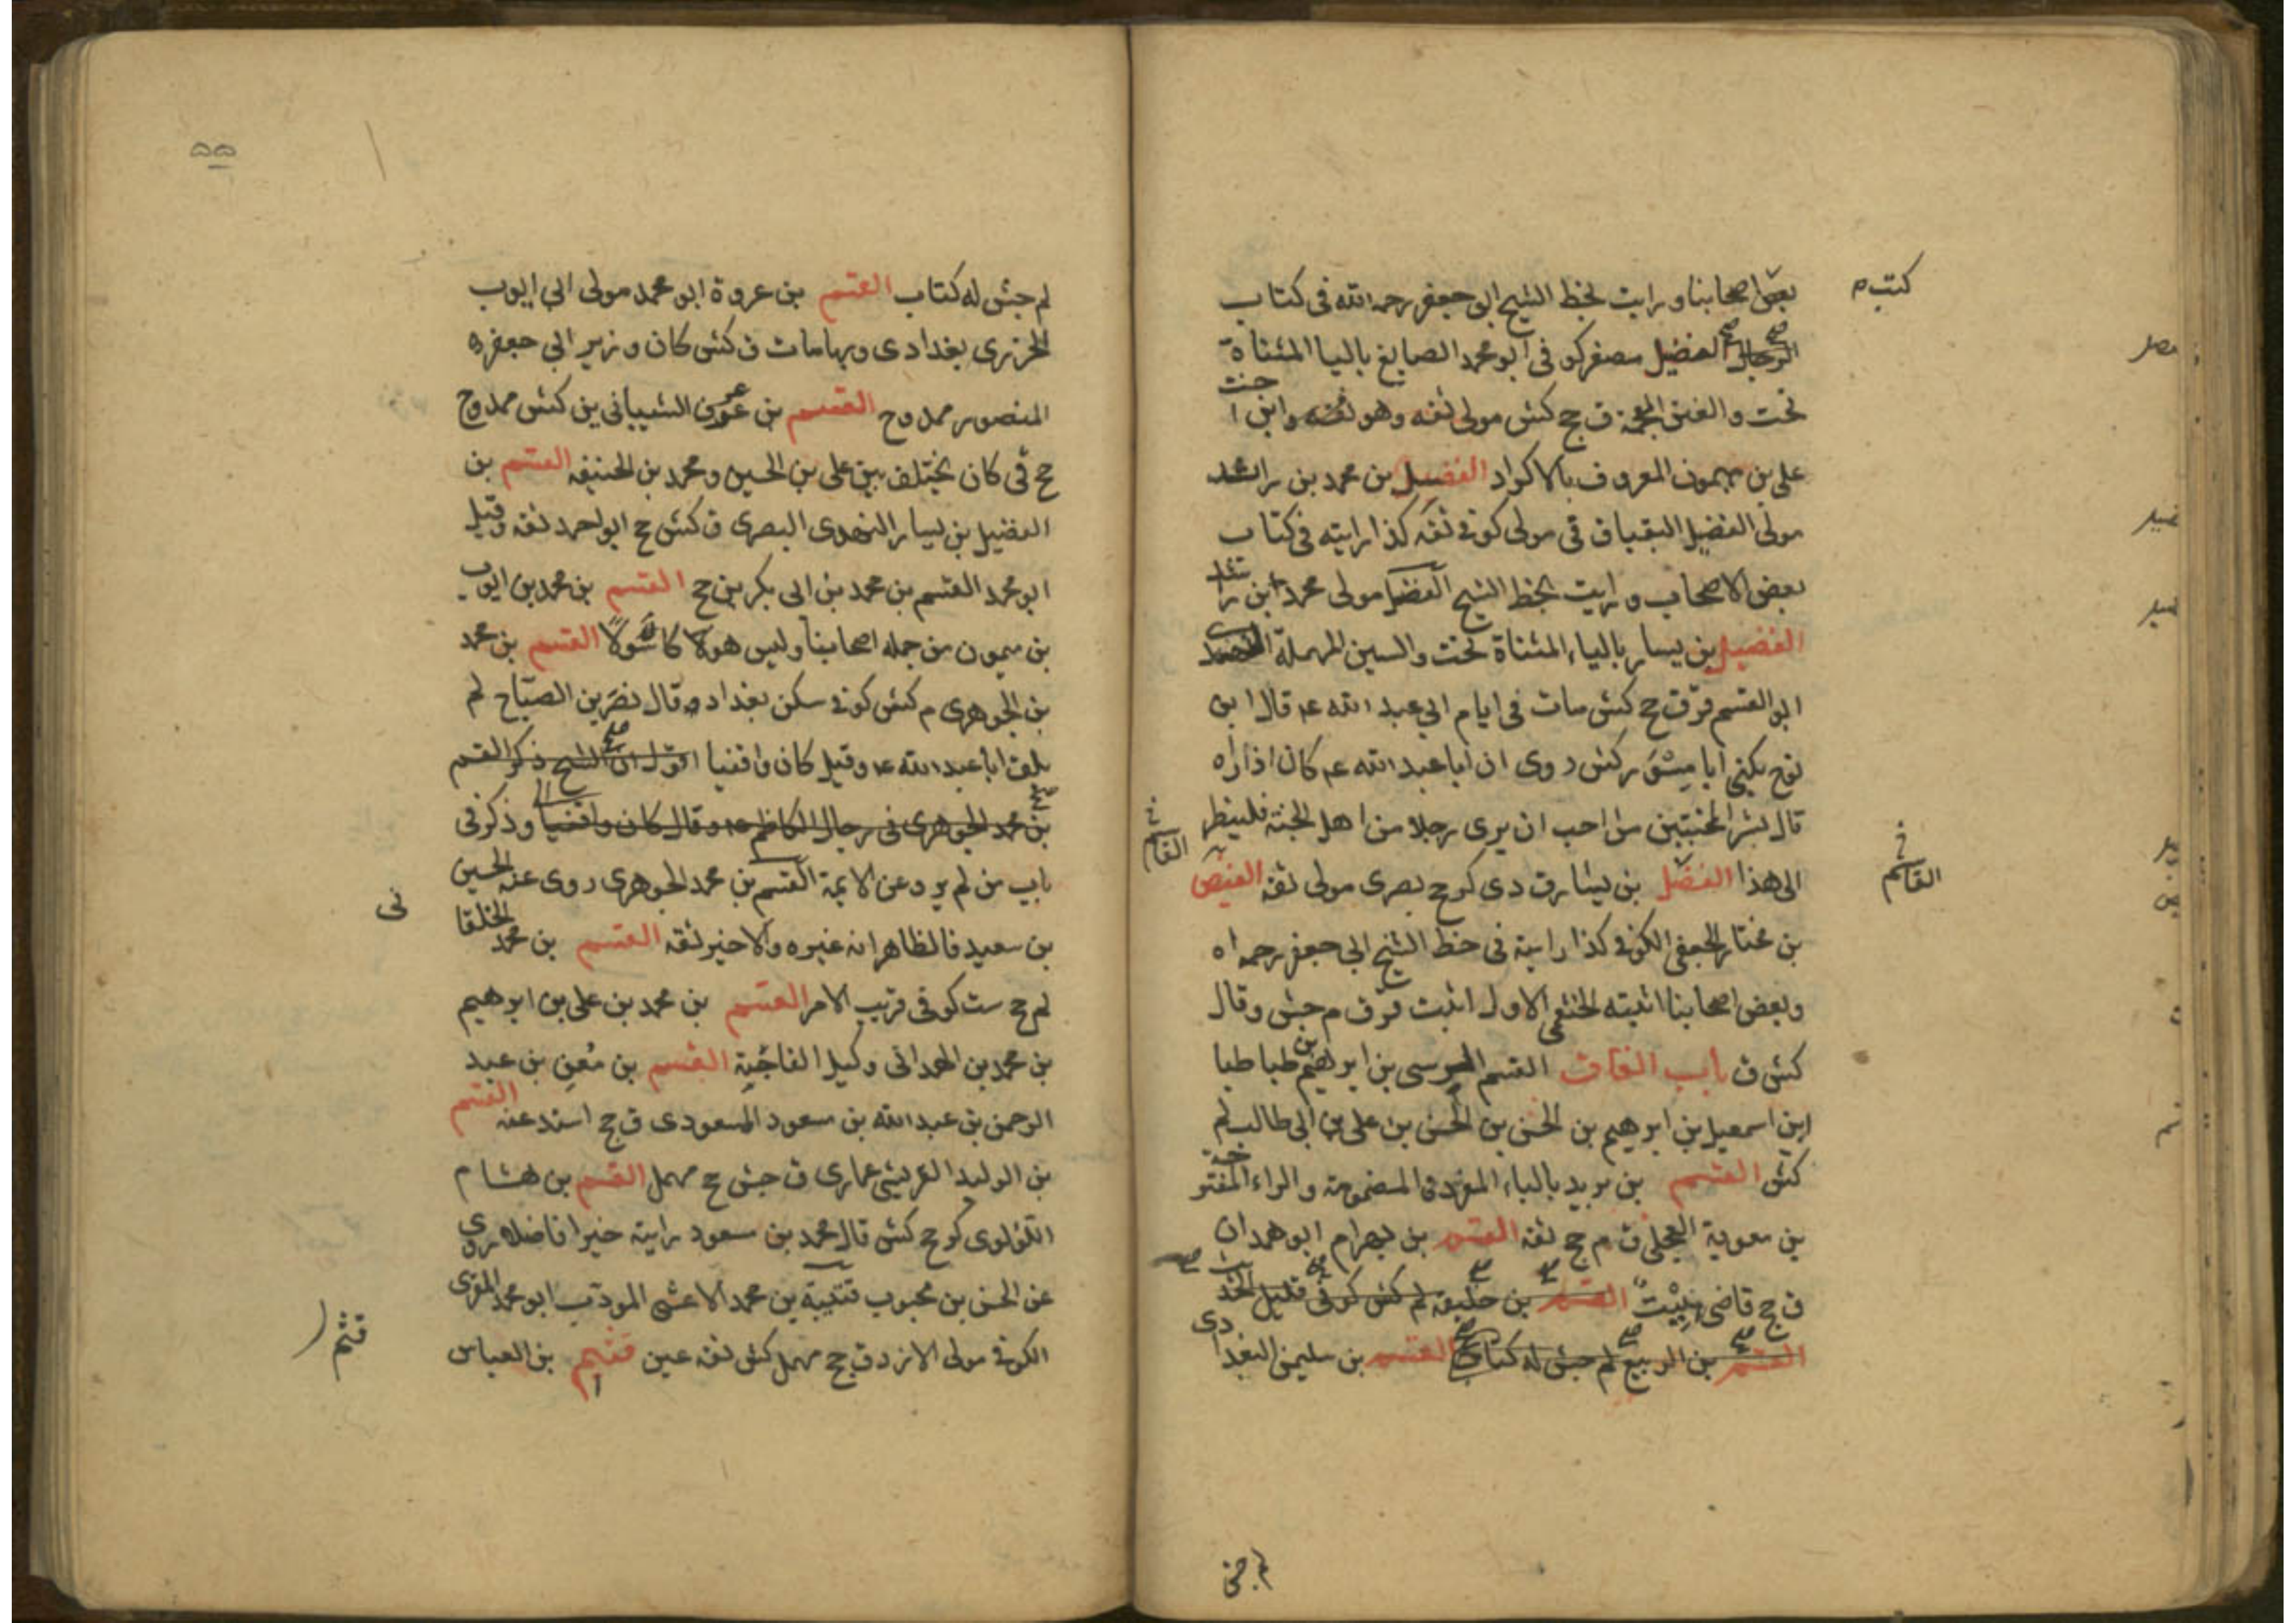 كتب م
بعض اصحابنا و رايت بخط الشيخ ابو جعفر رحمه الله فى كتاب
الرجال الفضيل مصغر كو فى ابو محمد الصايغ باليا المثناة
تحت و الغين المعجمة ق ج كش مولى ثقه وهو ثقه وابن ا خت
على بن ميمون المعروف بالاكراد الفضيل بن محمد بن راشد
مولى الفضيل البقباق قى مولى كوفى ثقه كذا رايته فى كتاب
بعض الاصحاب و رايت بخط الشيخ الفضل مولى محمد ابن راشد
الفضيل بن يسار بالياء المثناة تحت والسين المهملة النهدى
ابو القسم قر ق ج كش مات فى ايام ابي عبد الله ع قال ابن
نوح يكنى ابا مسور كش روى ان ابا عبد الله ع كان اذا راه
قال بشر المخبتين من احب ان يرى رجلا من اهل الجنة فلينظر
الى هذا الفضل بن يسار ق دى كو ج بصرى مولى ثقه الفيض
القاسم
بن مختار الجعفى الكوفى كذا رايته فى خط الشيخ ابي جعفر رحمه اه
وبعض اصحابنا اثبته الخثعمى الاول اثبت قر ق م جش وقال
كش ق باب القاف القسم الرسى بن ابرهيم بن طبا طبا
ابن اسمعيل بن ابرهيم بن الحسن بن الحسن بن على بن ابي طالب لم
كش القسم بن بريد بالباء المفردة المضمومة والراء المفتوحة
بن معوية العجلى ق م ج ثقه القسم بن بهرام ابو همدان
ق ج قاضى هيت القسم بن خليفه لم كش كوفى قليل الحديث
القسم بن الربيع لم جش له كتاب القسم بن سليمن البغدادى
لم جش
۵۵
لم جش له كتاب القسم بن عروة ابو محمد مولى ابي ايوب
الخزرى بغدادى وبها مات ق كش كان وزير ابي جعفر
المنصور ممدوح القسم بن عوف الشيبانى ين كش ممدوح
ج قى كان يختلف بين على بن الحسين ومحمد بن الحنيفه القسم بن
الفضيل بن يسار النهدى البصرى ق كش ج ابو احمد ثقه وقيل
ابو محمد القسم بن محمد بن ابى بكر ين ج القسم بن محمد بن ايوب
بن ميمون من جله اصحابنا وليس هو كا سولا القسم بن محمد
بن الجوهرى م كش كوفى سكن بغداد و قال نصر بن الصباح لم
يلق ابا عبد الله ع وقيل كان واقفيا اقول ان الشيخ ذكر القسم
بن محمد الجوهرى فى رجال الكاظم ع وقال كان واقفيا وذكر فى
باب من لم يرو عن الايمة القسم بن محمد الجوهرى روى عنه الحسين
بن سعيد فالظاهر انه غيره والاخير ثقه القسم بن محمد الخلقا
نى
لم ج ست كوفى قريب الامر القسم بن محمد بن على بن ابرهيم
بن محمد بن الهمدانى وكيل الناحية القسم بن معن بن عبد
الرحمن بن عبد الله بن مسعود المسعودى ق ج اسند عنه القسم
بن الوليد القرشى عمارى ق جش ج مهمل القسم بن هشام
اللؤلوى كو ج كش قال محمد بن مسعود رايته خيرا فاضلا روى
عن الحسن بن محبوب قتيبة بن محمد الاعشى المودب ابو محمد المقرى
الكوفى مولى الازد ق ج مهمل كش ثقه عين قثم بن العباس
قثم